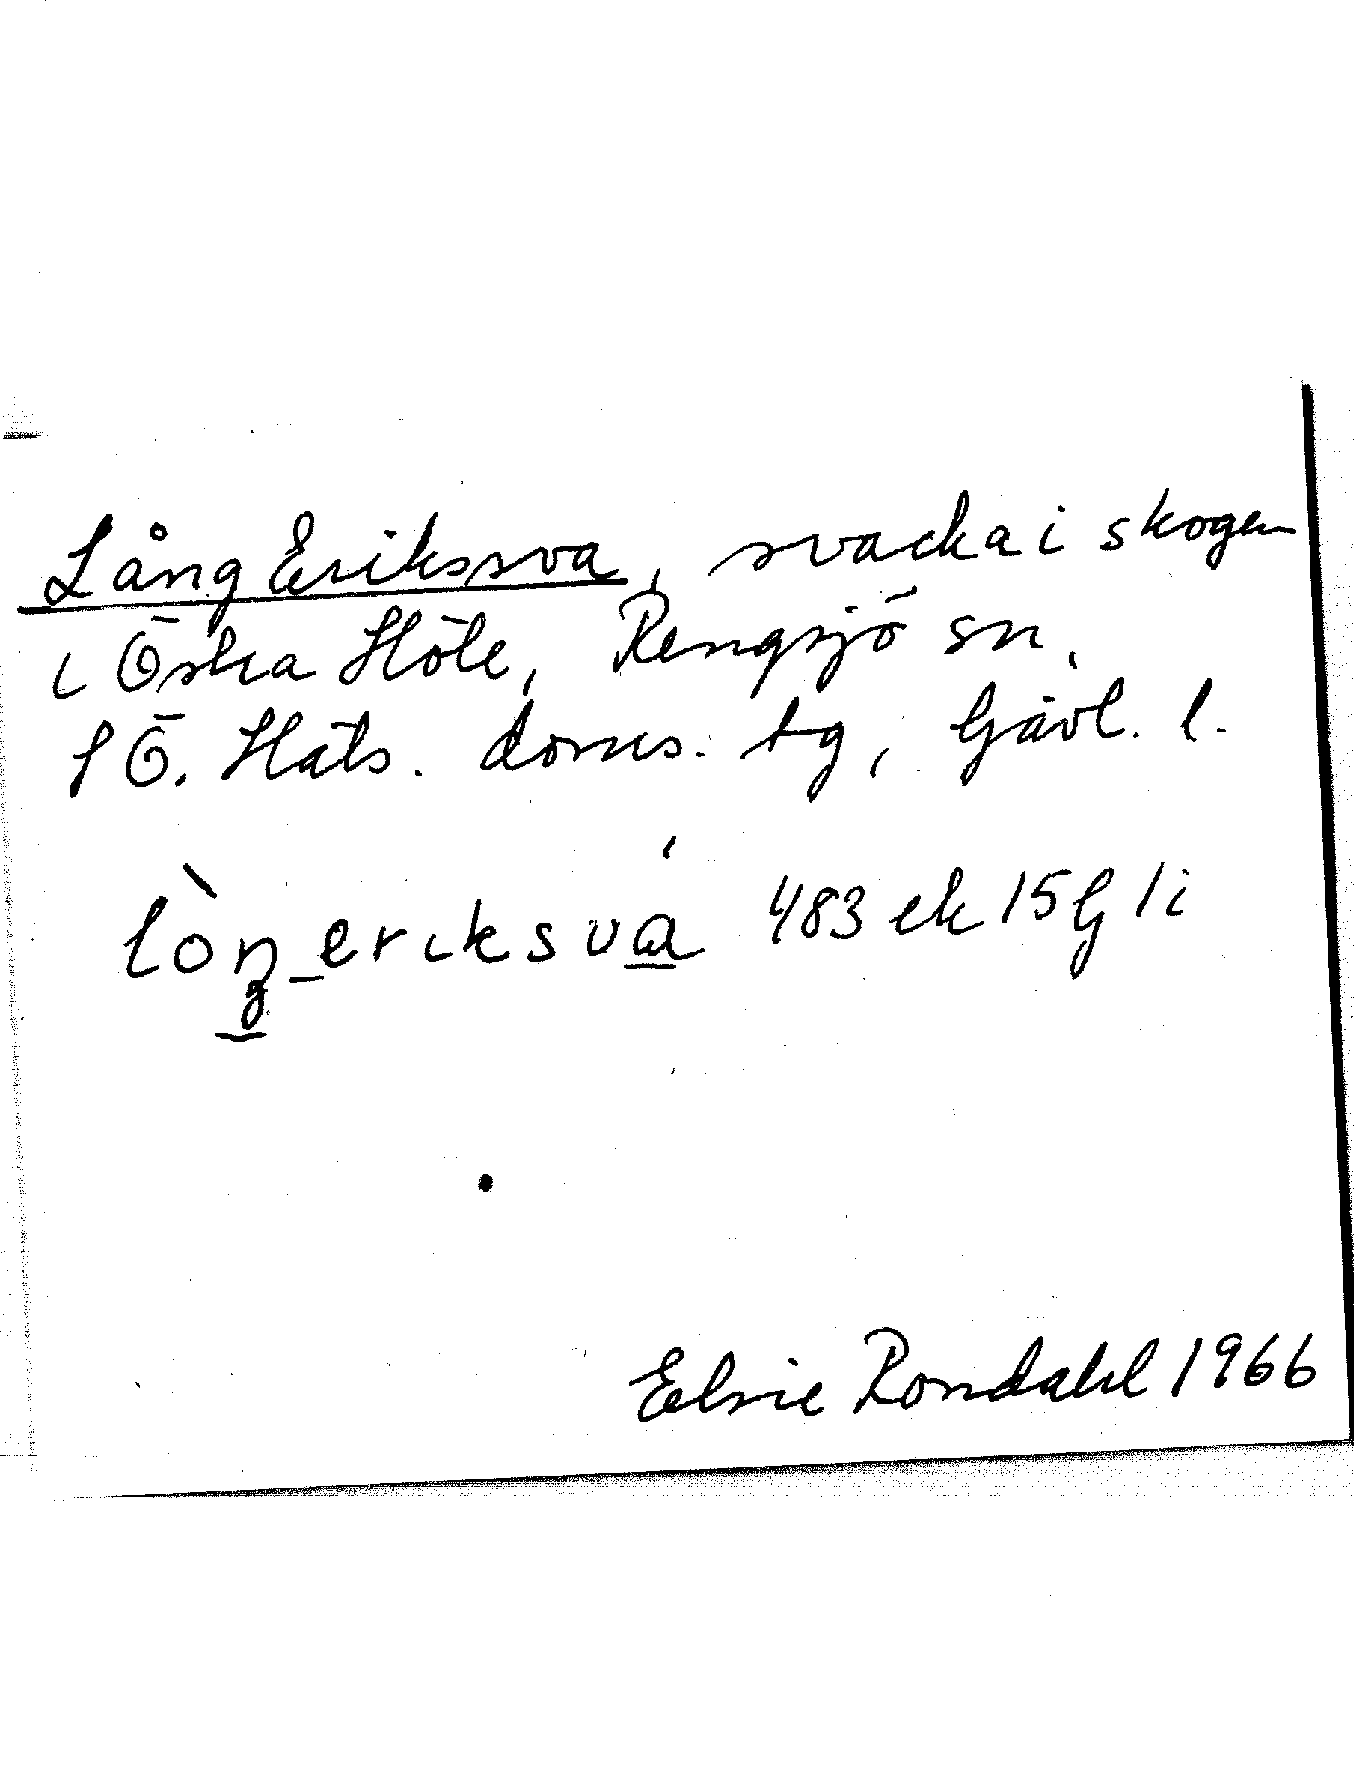 Lång Erikssva, svacka i skogen
i Östra Höle, Rengsjö sn,
S Ö. Häls. doms. tg, Gävl. l.
lòŋ_eriksvá 483 ek 15 G 1 i
Elsie Rondahl 1966